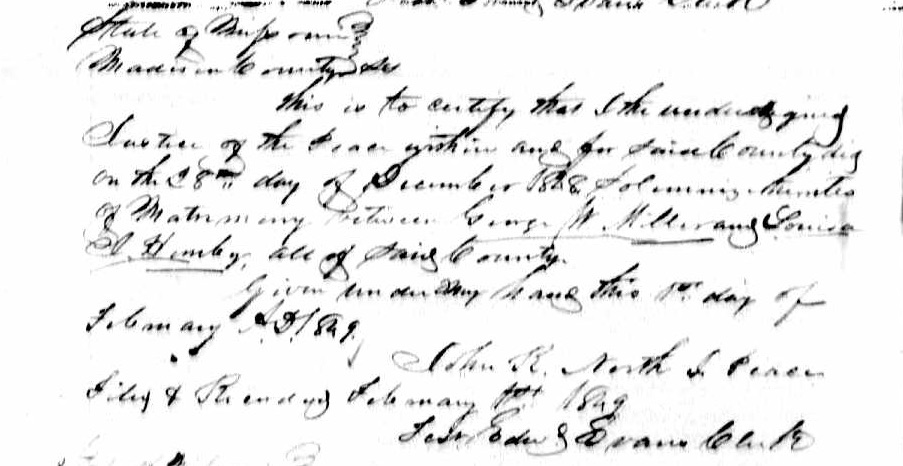 Evans Clerk
State of Missouri
Madison County Sct
This is to certify that I the undersigned
Justice of the Peace within and for said County did
on the 28th day of December 1848 Solemnize the rites
of Matrimony between George W. Miller and Louisa
J. Henley, all of said County.
Given under my hand this 1st day of
February A.D. 1849.
John R. North J. Peace
Filed & Recorded February 1st 1849
Test Evans Clerk